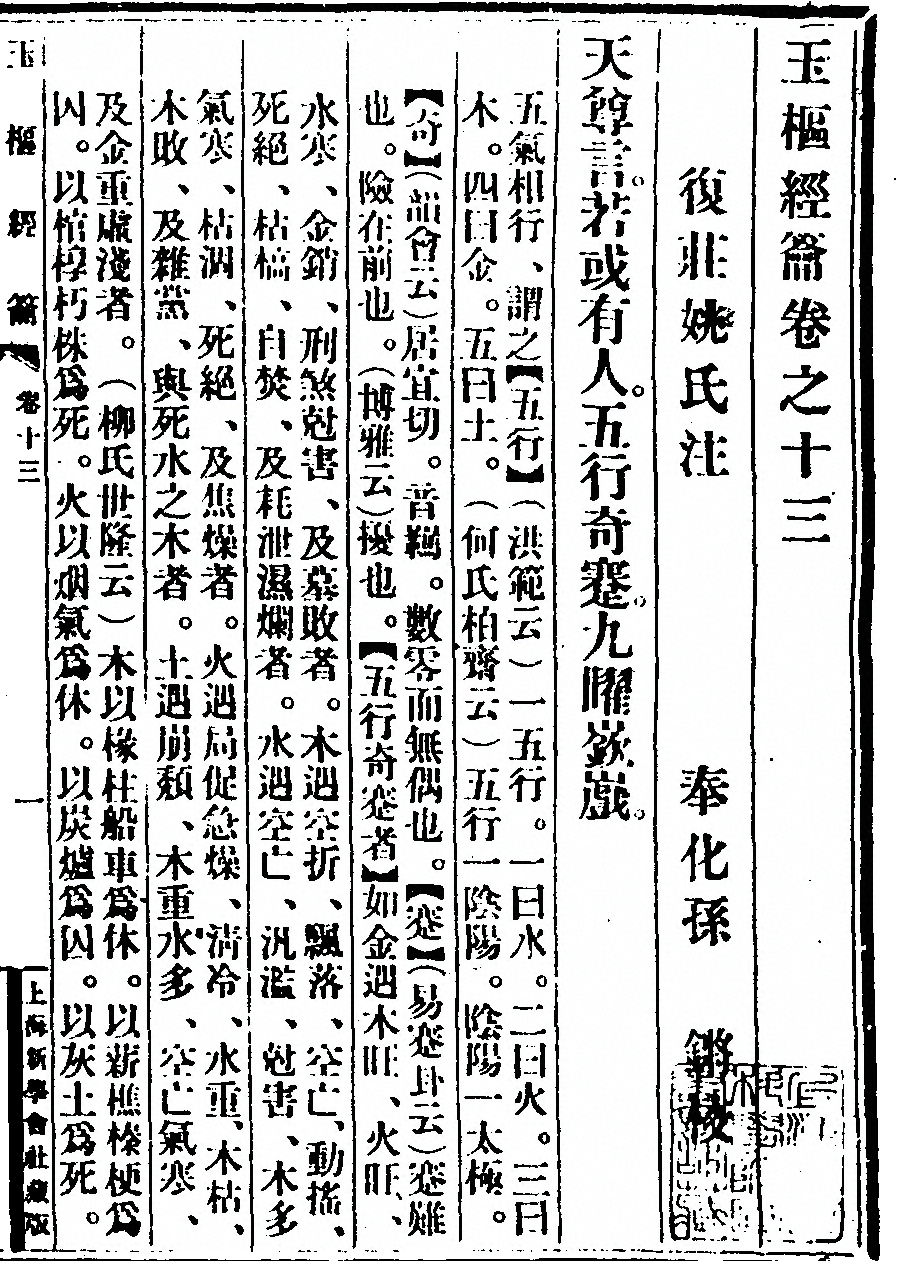 玉樞經籥卷之十三
復莊姚氏注　奉化孫　鏘校
天尊言。若或有人。五行奇蹇。九曜嶔巇。
五氣相行、謂之【五行】（洪範云）一五行。一曰水。二曰火。三曰
木。四曰金。五曰土。（何氏柏齋云）五行一陰陽。陰陽一太極。
【奇】（韻會云）居宜切。音羈。數零而無偶也。【蹇】（易蹇卦云）蹇難
也。險在前也。（博雅云）擾也。【五行奇蹇者】如金遇木旺、火旺、
水寒、金銷、刑煞尅害、及墓敗者。木遇空折、飄落、空亡、動搖、
死絕、枯槁、自焚、及耗泄濕爛者。水遇空亡、汎濫、尅害、木多
氣寒、枯涸、死絕、及焦燥者。火遇局促急燥、清冷、水重、木枯、
木敗、及雜黨、與死水之木者。土遇崩頽、木重水多、空亡氣寒、
及金重虛淺者。（柳氏世隆云）木以椽柱船車爲休。以薪樵榛梗爲
囚。以棺椁朽株爲死。火以烟氣爲休。以炭爐爲囚。以灰土爲死。
玉樞經籥　卷十三　一
上海新學會社藏版